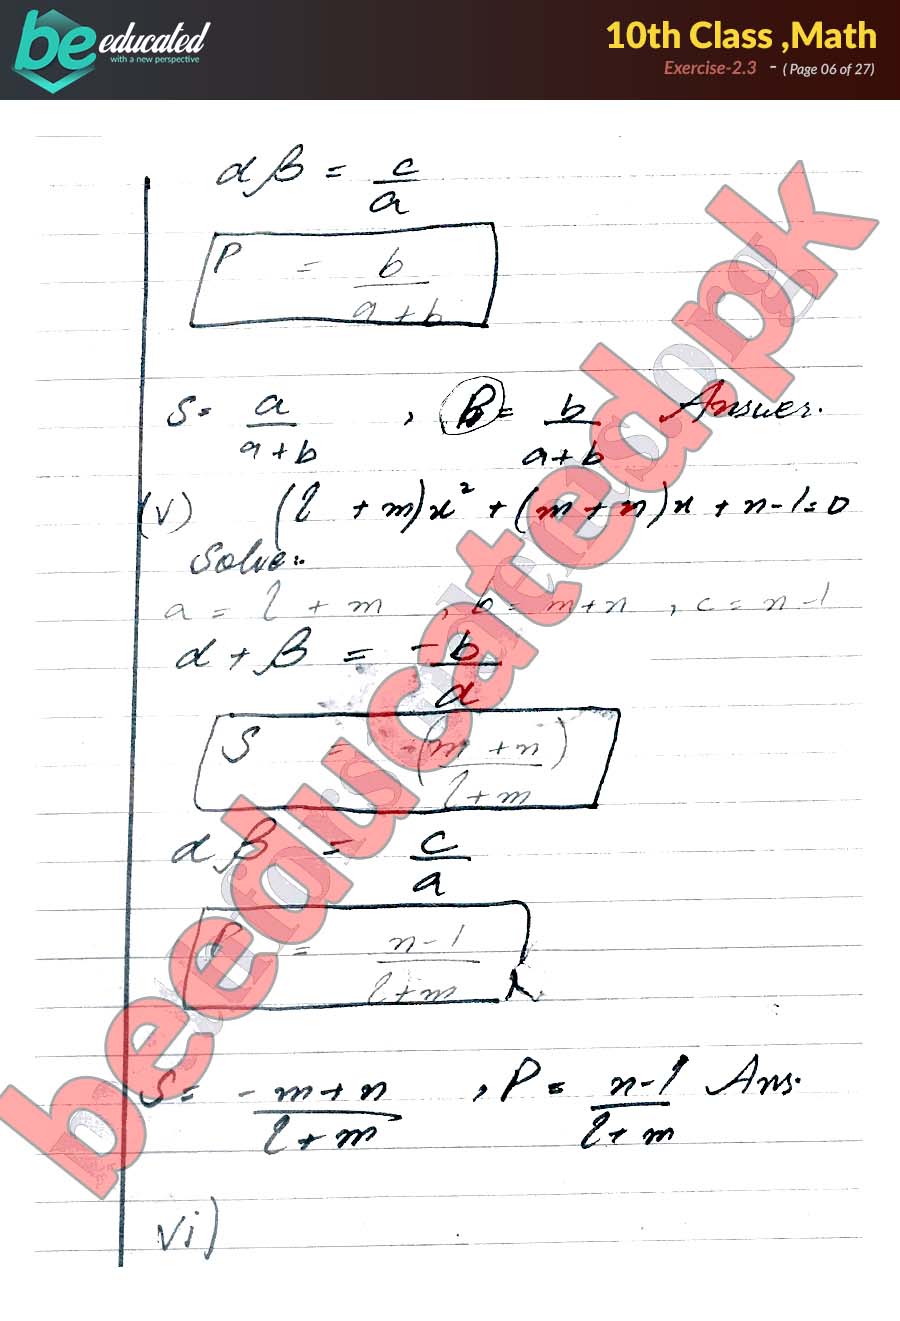 be educated
with a new perspective
10th Class ,Math
Exercise-2.3 - ( Page 06 of 27)
αβ = c/a
P = b/a+b
S= a/a+b , P= b/a+b Answer.
(v) (l + m)x² + (m+n)x + n-l=0
Solve:.
a = l + m , b = m+n , c = n-l
α + β = -b/a
S = -(m+n)/l+m
αβ = c/a
P = n-l/l+m
S= -m+n/l+m , P= n-l/l+m Ans.
vi)
beeducated.pk